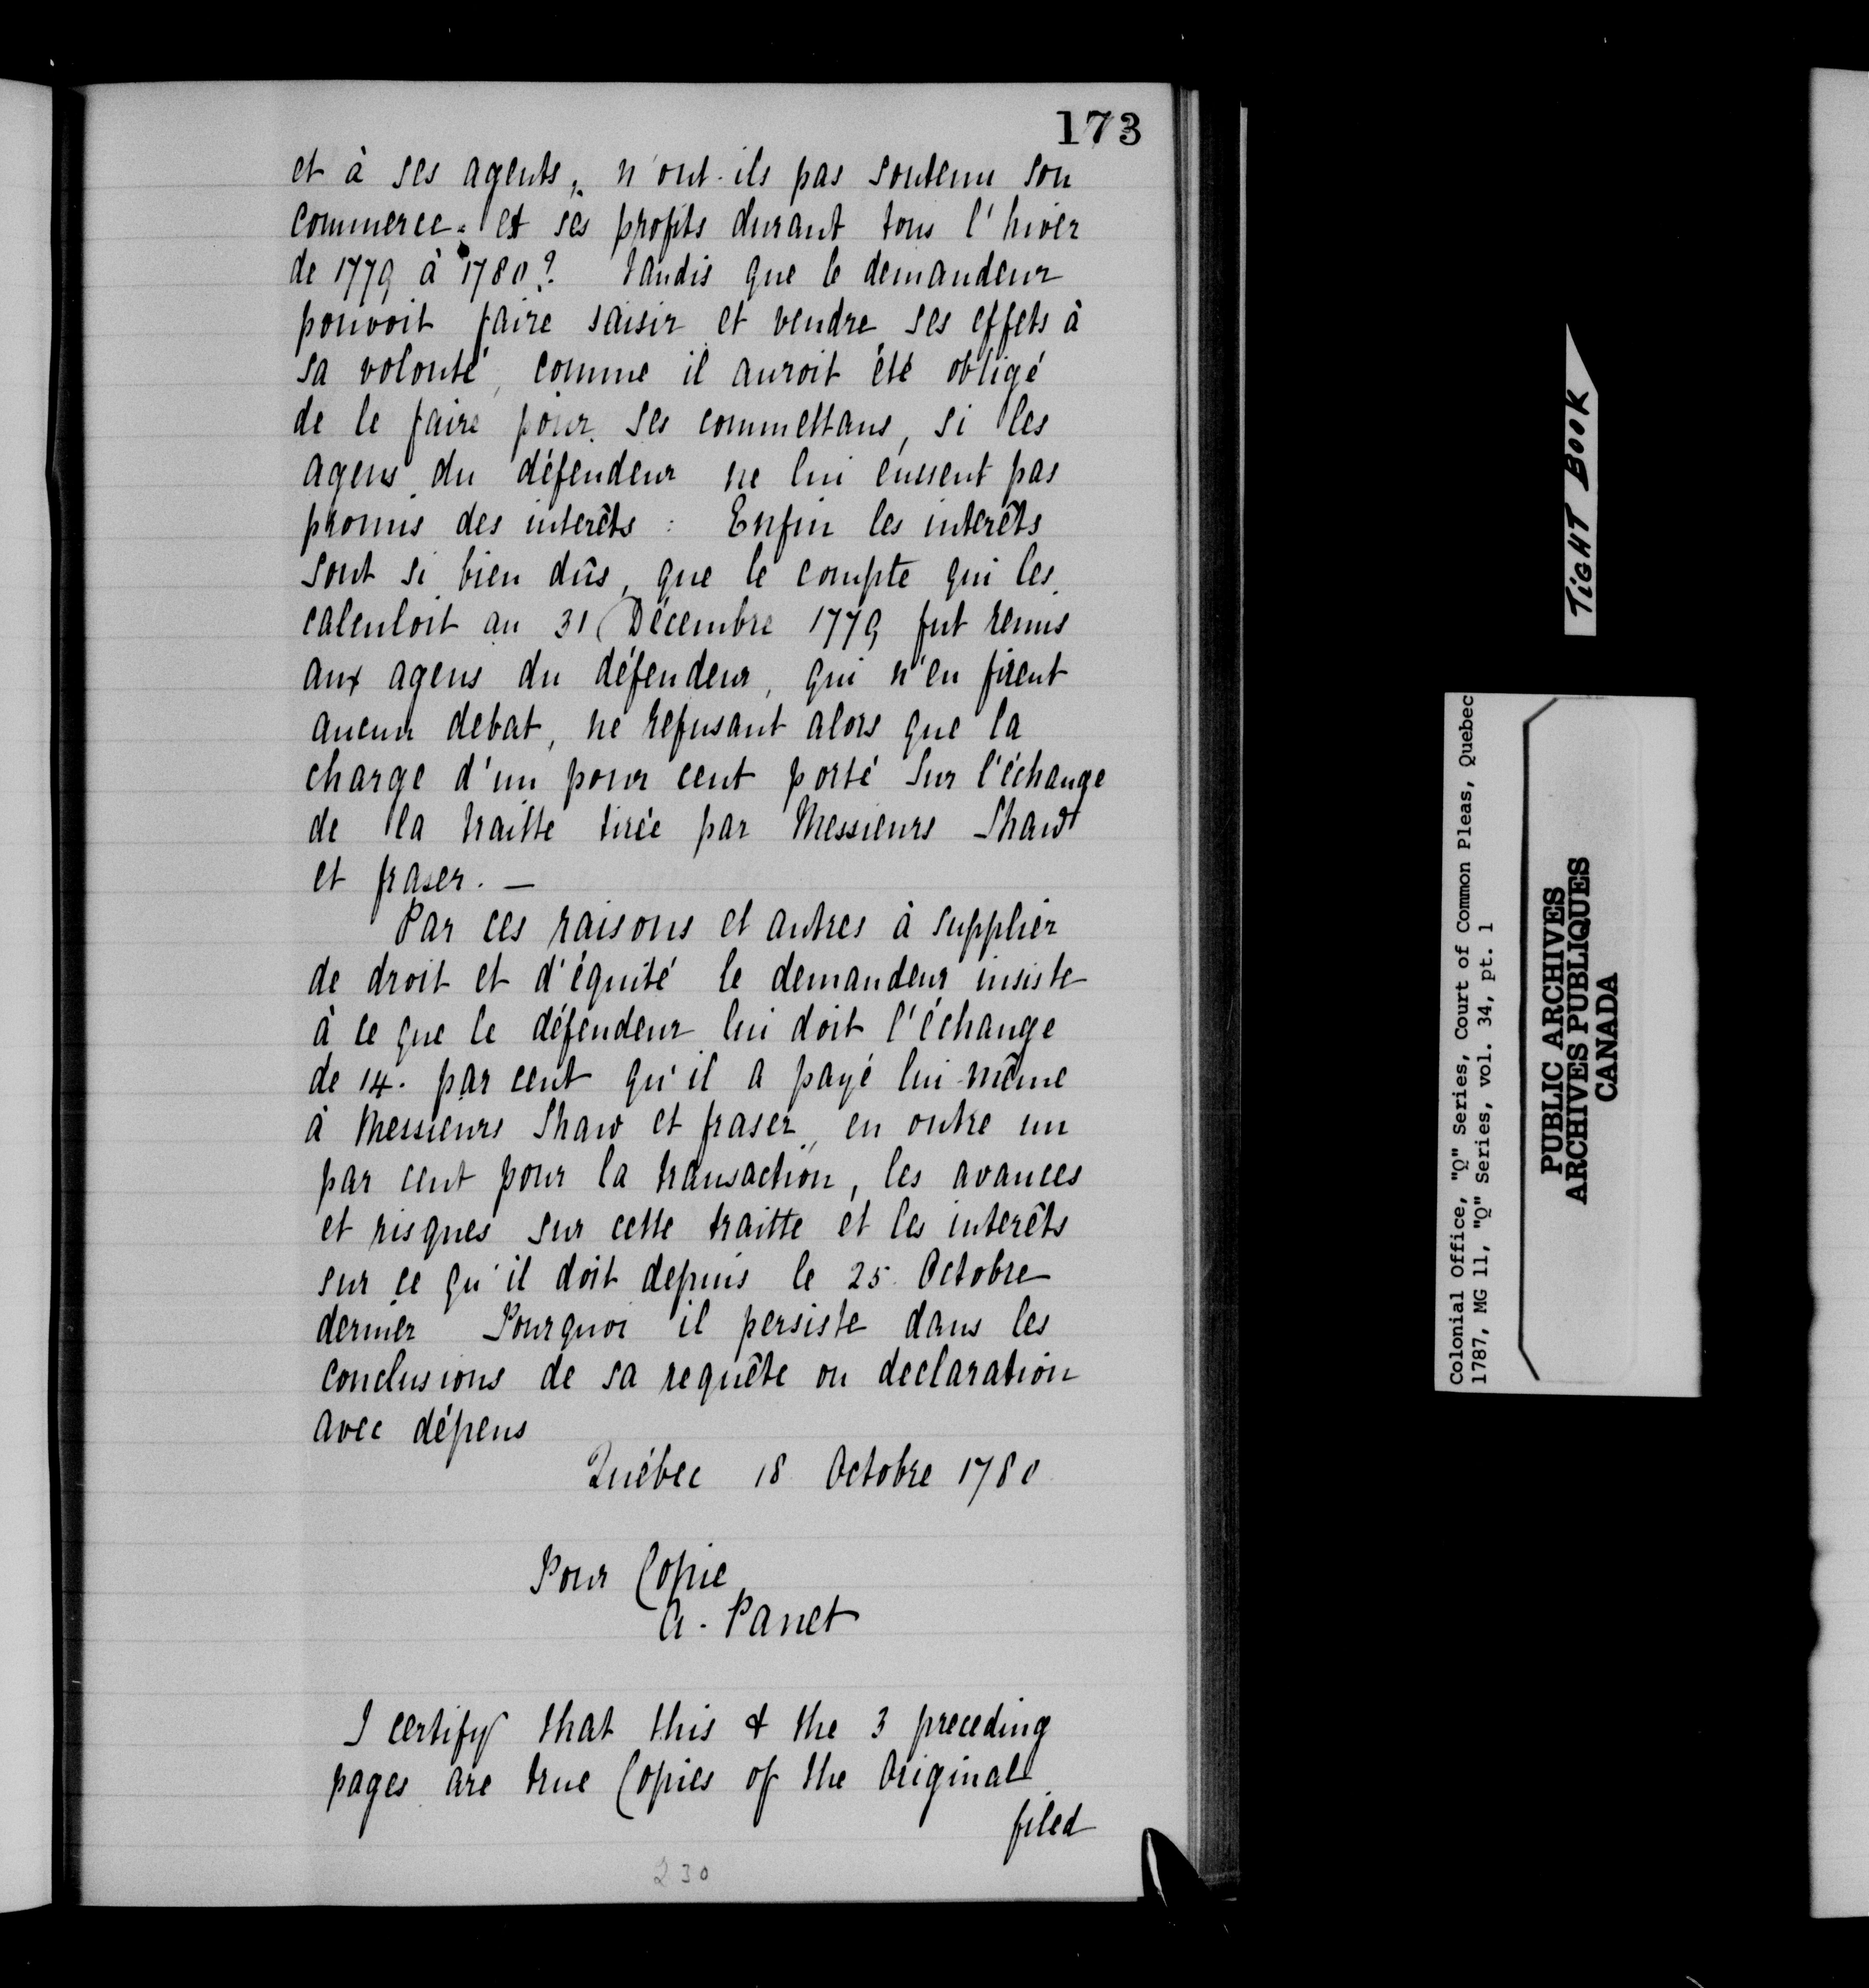 173
et à ses agents, n'ont-ils pas soutenu son
commerce et ses profits durant tous l'hiver
de 1779 à 1780? tandis que le demandeur
pouvoit faire saisir et vendre ses effets à
sa volonté, comme il auroit été obligé
de le faire pour ses commettans, si les
agens du défendeur ne lui eussent pas
promis des interêts : Enfin les interêts
sont si bien dûs, que le compte qui les
calculoit au 31 Décembre 1779 fut remis
aux agens du défendeur, qui n'en firent
aucun debat, ne refusant alors que la
charge d'un pour cent porté sur l'échange
de la traitte tirée par Messieurs Shaw
et fraser. —
Par ces raisons et autres à supplier
de droit et d'équité le demandeur insiste
à ce que le défendeur lui doit l'échange
de 14. par cent qu'il a payé lui-même
à Messieurs Shaw et fraser, en outre un
par cent pour la transaction, les avances
et risques sur cette traitte et les interêts
sur ce qu'il doit depuis le 25 Octobre
dernier Pourquoi il persiste dans les
conclusions de sa requête ou declaration
avec dépens
Québec 18 Octobre 1780
Pour Copie
A. Panet
I certify that this & the 3 preceding
pages are true Copies of the Original
filed
230
TIGHT BOOK
Colonial Office, "Q" Series, Court of Common Pleas, Quebec
1787, MG 11, "Q" Series, vol. 34, pt. 1
PUBLIC ARCHIVES
ARCHIVES PUBLIQUES
CANADA